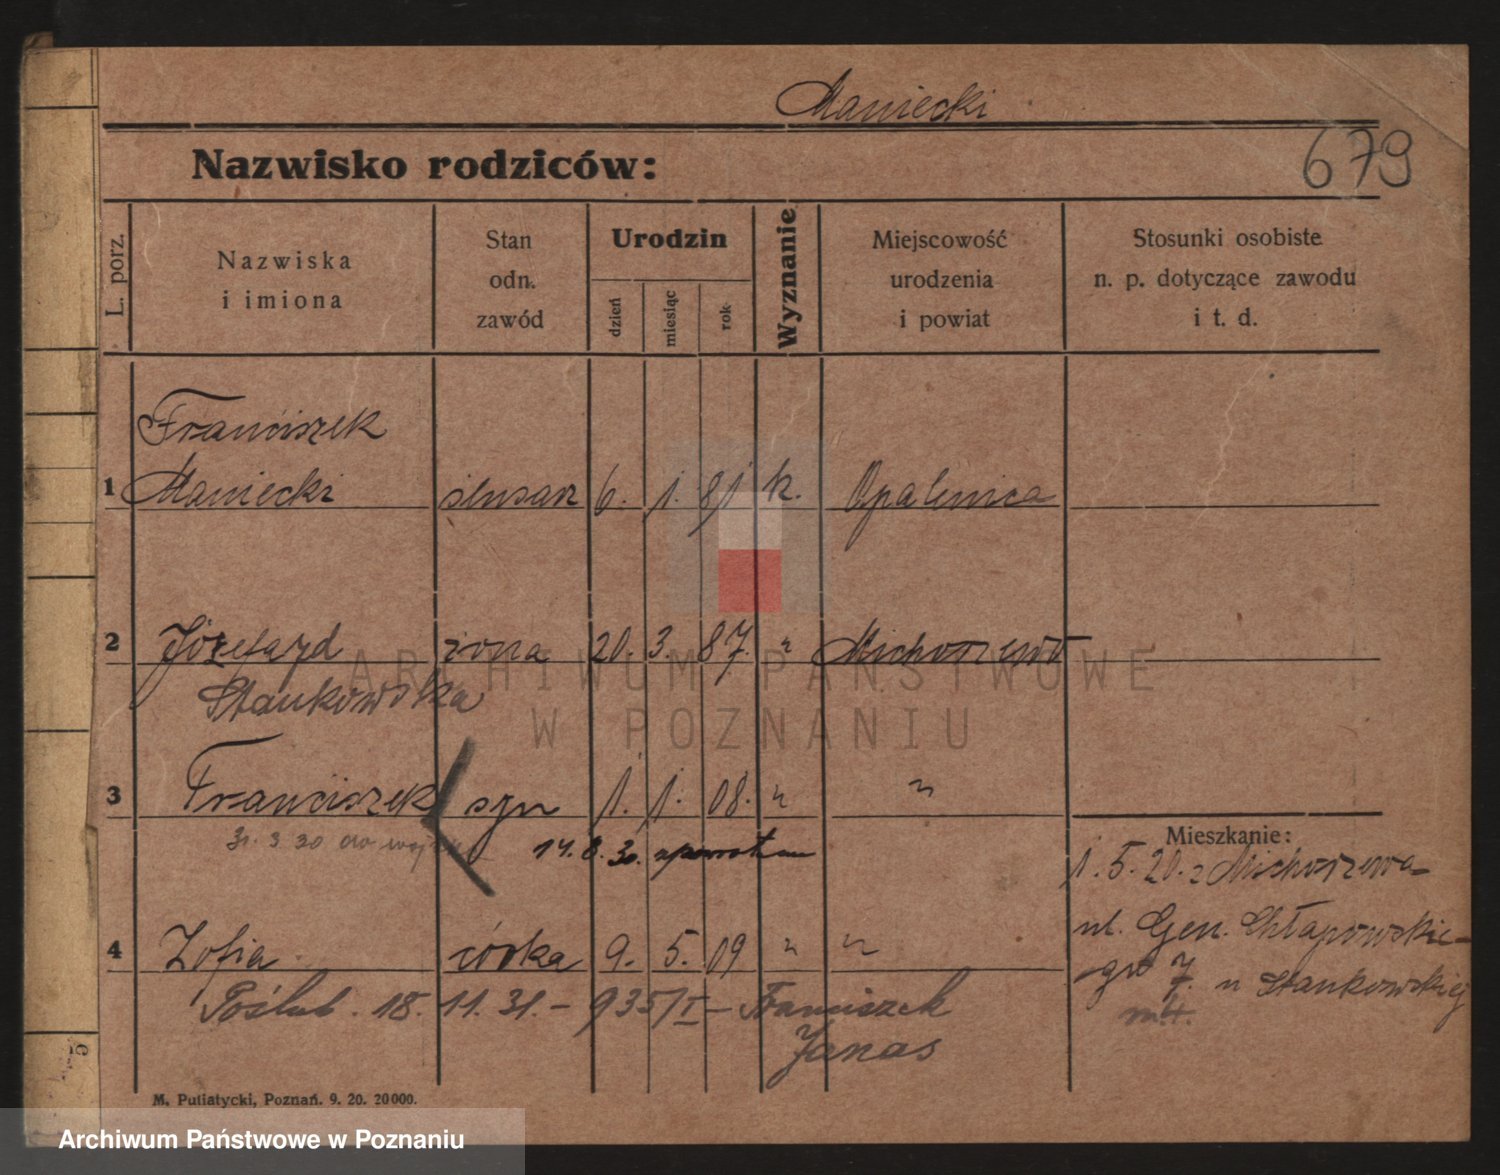 Maniecki
Nazwisko rodziców:
679
L. porz.
Nazwiska
i imiona
Stan
odn.
zawód
Urodzin
dzień
miesiąc
rok
Wyznanie
Miejscowość
urodzenia
i powiat
Stosunki osobiste
n. p. dotyczące zawodu
i t. d.
Franciszek
1 Maniecki ślusarz 6. 1. 81 k. Opalenica
2 Józefa zd żona 20. 3. 87. " Michorzewo
Stankowska
3 Franciszek syn 1. 1. 08. " "
31. 3. 30 do
14. 8. 30.
Mieszkanie:
1. 5. 20. z Michorzewa
ul. Gen. Chłapowskie-
4 Zofia córka 9. 5. 09 " "
go 7. u Stankowskiej
m.4.
Poślub. 18. 11. 31. – 935/I – Franciszek
Janas
M. Putiatycki, Poznań. 9. 20. 20000.
ARCHIWUM PAŃSTWOWE
W POZNANIU
Archiwum Państwowe w Poznaniu